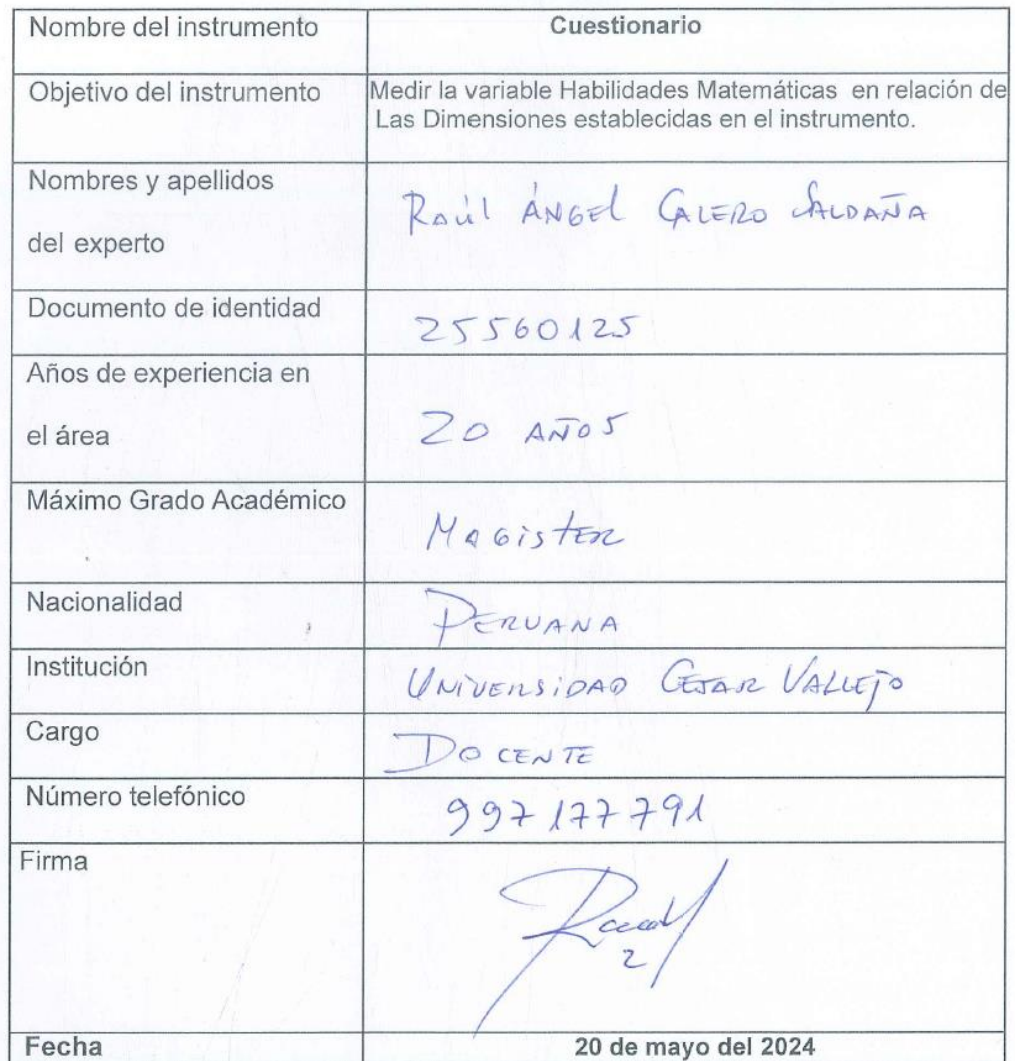 Nombre del instrumento Cuestionario
Objetivo del instrumento Medir la variable Habilidades Matemáticas en relación de
Las Dimensiones establecidas en el instrumento.
Nombres y apellidos
del experto
Raúl ÁNGEL CALERO SALDAÑA
Documento de identidad
25560125
Años de experiencia en
el área
20 AÑOS
Máximo Grado Académico
MAGISTER
Nacionalidad
PERUANA
Institución
UNIVERSIDAD CESAR VALLEJO
Cargo
DOCENTE
Número telefónico
997177791
Firma
Fecha 20 de mayo del 2024